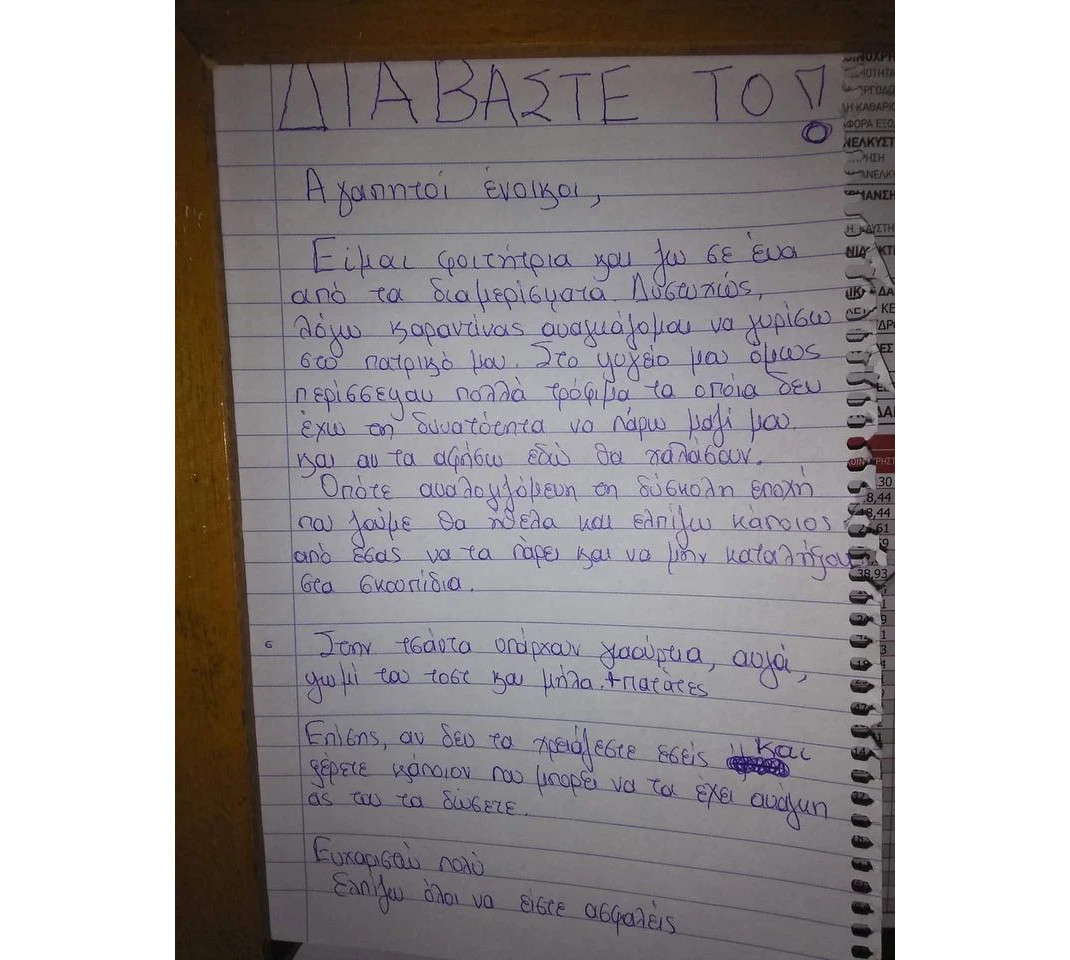 ΔΙΑΒΑΣΤΕ ΤΟ!
Αγαπητοί ένοικοι,
Είμαι φοιτήτρια και ζω σε ένα
από τα διαμερίσματα. Δυστυχώς,
λόγω καραντίνας αναγκάζομαι να γυρίσω
στο πατρικό μου. Στο ψυγείο μου όμως
περίσσεψαν πολλά τρόφιμα τα οποία δεν
έχω τη δυνατότητα να πάρω μαζί μου.
και αν τα αφήσω εδώ θα χαλάσουν.
Οπότε αναλογιζόμενη τη δύσκολη εποχή
που ζούμε θα ήθελα και ελπίζω κάποιος
από εσάς να τα πάρει και να μην καταλήξουν
στα σκουπίδια.
Στην τσάντα υπάρχουν γιαούρτια, αυγά,
ψωμί του τοστ και μήλα.+πατάτες
Επίσης, αν δεν τα χρειάζεστε εσείς και
ξέρετε κάποιον που μπορεί να τα έχει ανάγκη
ας του τα δώσετε.
Ευχαριστώ πολύ
Ελπίζω όλοι να είστε ασφαλείς
ΚΑΘΑΡΙΣ
ΑΦΟΡΑ ΕΞΟ
ΝΕΛΚΥΣΤ
8,44
38,93